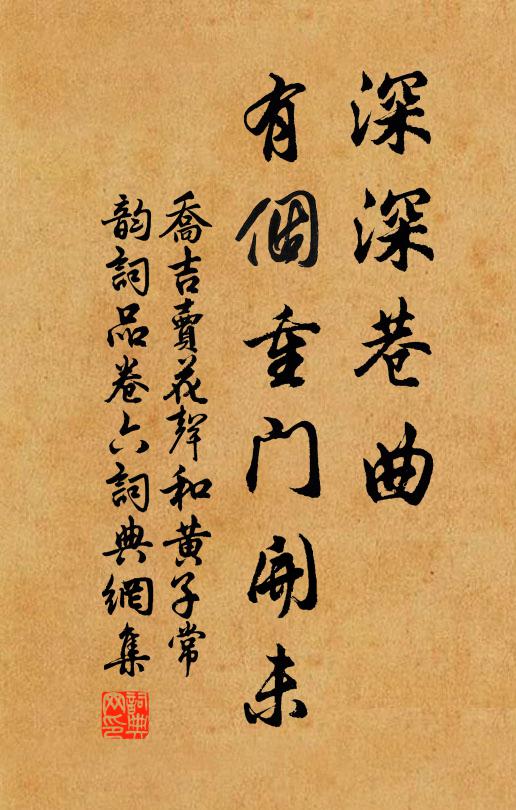 深深巷曲
有個重門開未
喬吉賣花聲和黄子常
韵詞品卷六詞典網集
詞典网印